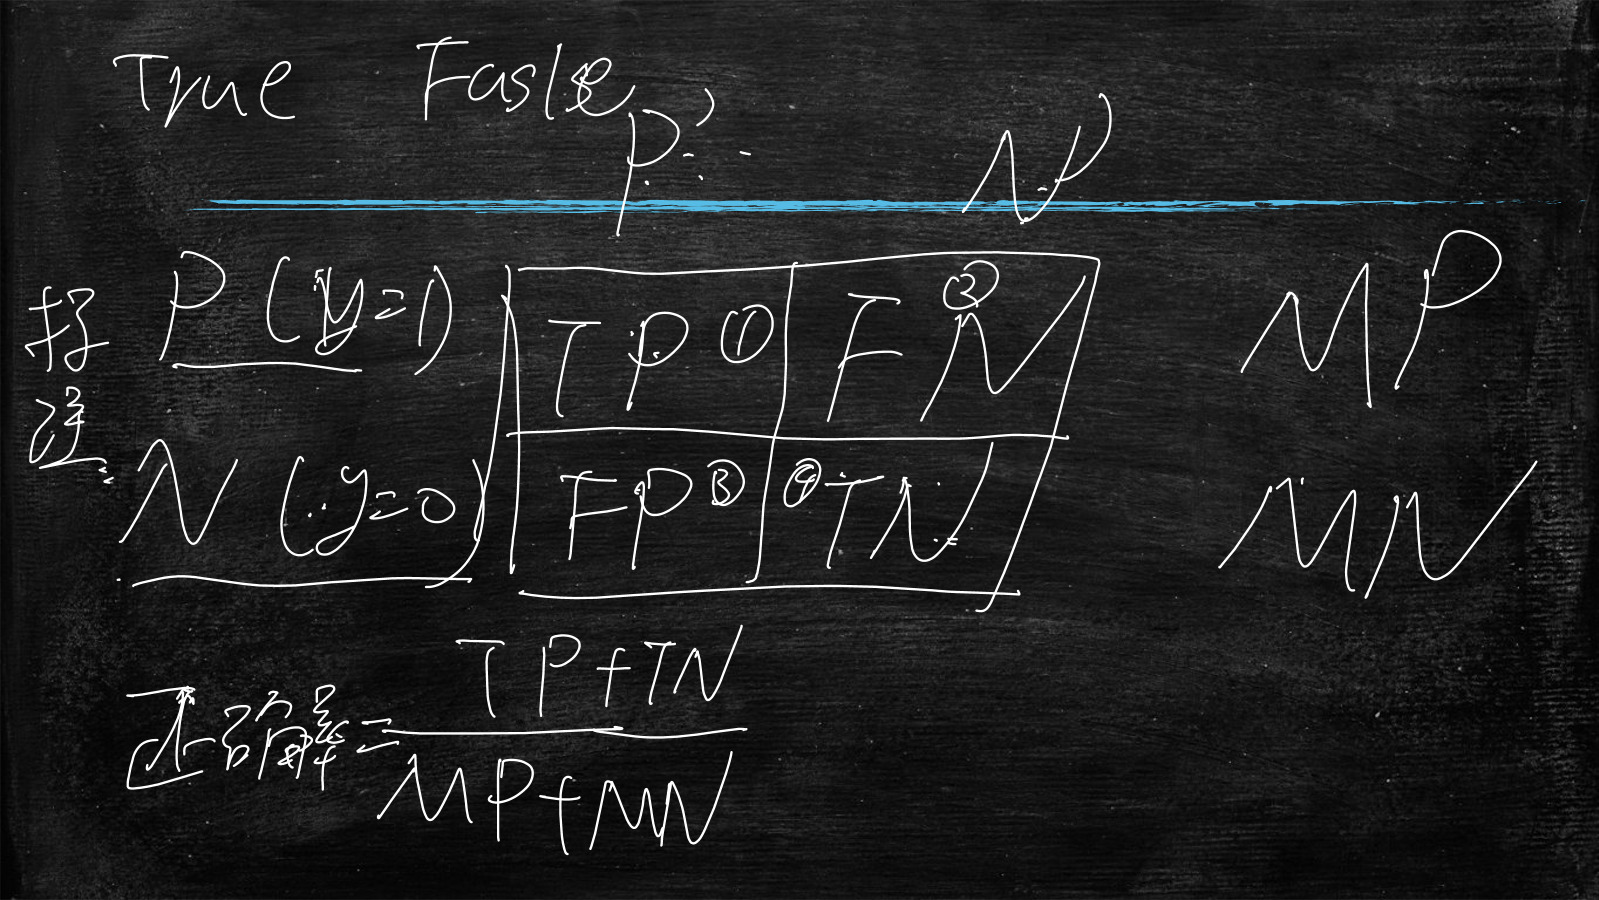 True Faslse
P' N'
P (y=1) TP① FN② MP
N (y=0) FP③ ④TN MN
正确率=
TP+TN
MP+MN